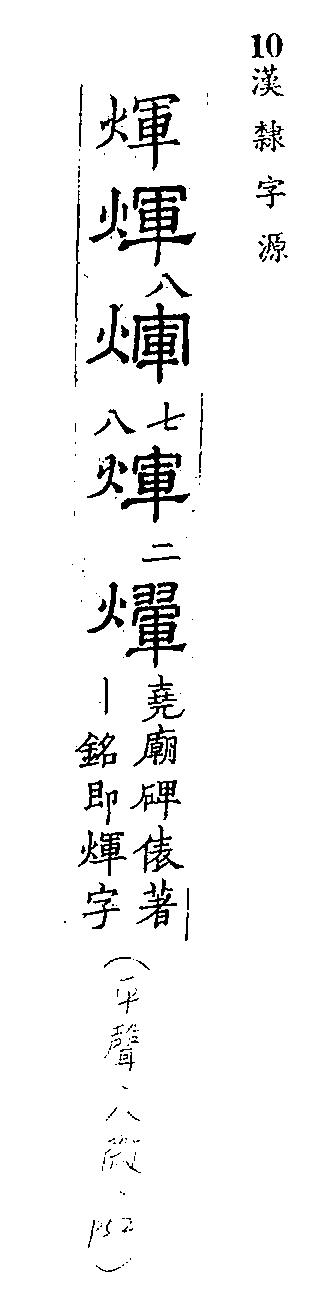 10漢隸字源
煇煇八煇七八煇二堯廟碑俵著丨銘即煇字(平聲、八微、P52)